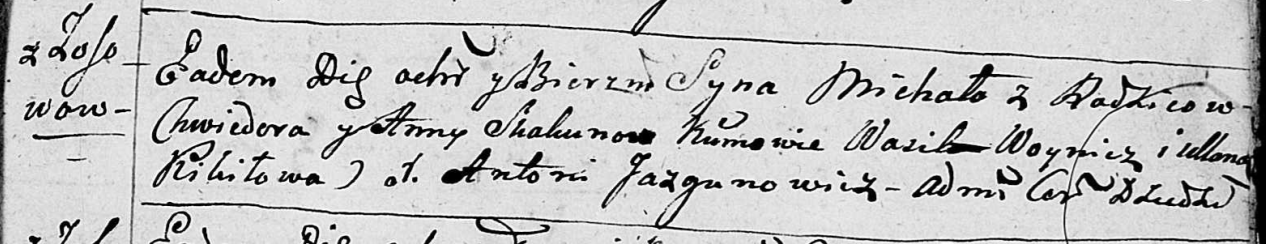 z Łoso
wow –
Eadem Die ochř y Bierzm Syna Michała z Rodzicow
Chwiedora y Anny Skakunow Kumowie Wasil Woynicz i Ullana
Kikiłowa) X. Antoni Jazgunowicz – Adm Cer Dziedzi